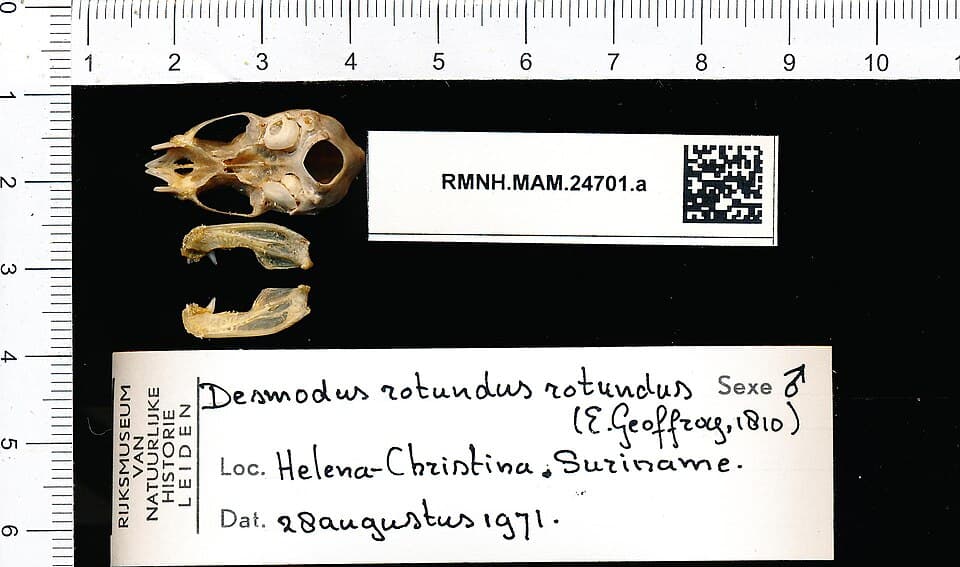 0 1 2 3 4 5 6 7 8 9 10 1
1
2
3
4
5
6
RMNH.MAM.24701.a
RIJKSMUSEUM
VAN
NATUURLIJKE
HISTORIE
LEIDEN
Desmodus rotundus rotundus Sexe ♂
(E. Geoffroy, 1810)
Loc. Helena-Christina, Suriname.
Dat. 28 augustus 1971.